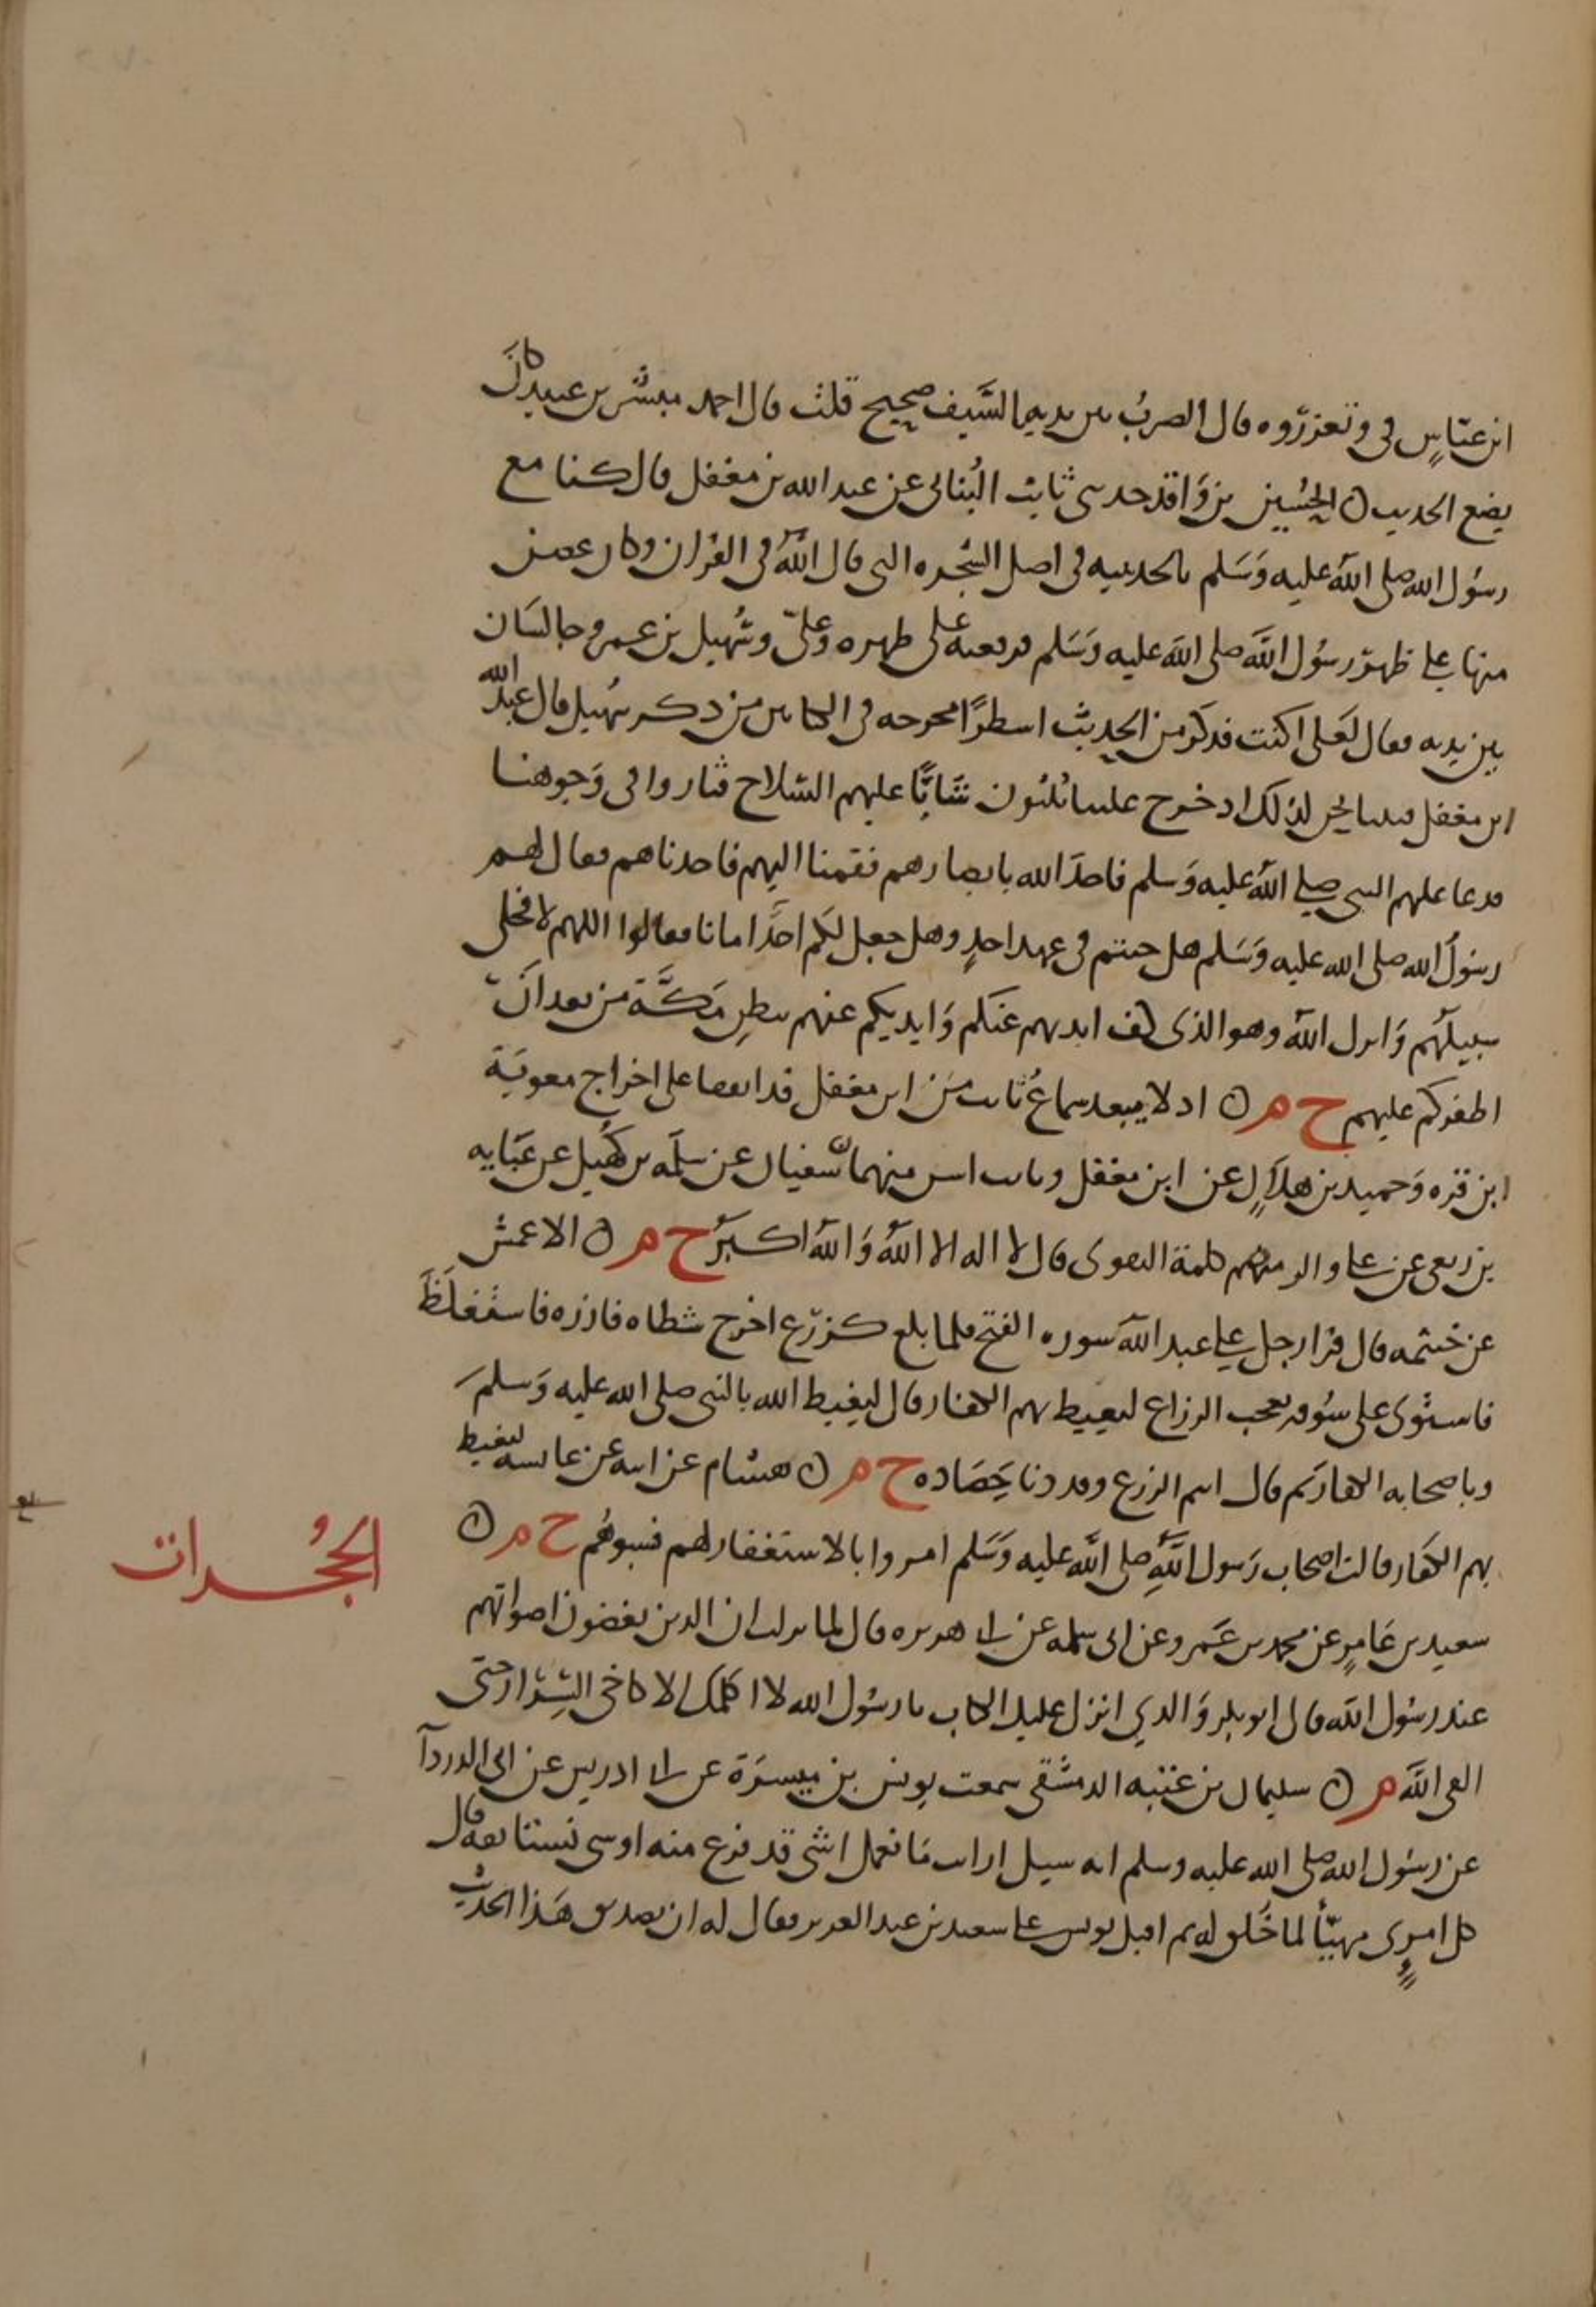 ابن عباس في وتعزروه قال الضرب بين يديه بالسيف صحيح قلت قال احمد مبشر بن عبيد كان
يضع الحديث ن الحسين بن واقد حدثني ثابت البناني عن عبد الله بن مغفل قال كنا مع
رسول الله صلى الله عليه وسلم بالحديبية في اصل الشجرة التي قال الله في القران وكان غصن
منها على ظهر رسول الله صلى الله عليه وسلم فرفعته على ظهره وعلي وسهيل بن عمرو جالسان
بين يديه فقال لعلي اكتب فذكر من الحديث اسطرًا مخرجه في الكتابين من ذكر سهيل قال عبد الله
ابن مغفل فبينا نحن لذلك اذ خرج علينا ثلثون شابًا عليهم السلاح فثاروا في وجوهنا
فدعا عليهم النبي صلى الله عليه وسلم فاخذ الله بابصارهم فقمنا اليهم فاخذناهم فقال لهم
رسول الله صلى الله عليه وسلم هل جئتم في عهد احدٍ وهل جعل لكم احدًا امانا فقالوا اللهم لا فخلى
سبيلهم وانزل الله وهو الذي كف ايديهم عنكم وايديكم عنهم ببطن مكة من بعد ان
اظفركم عليهم خ م ن اذ لا يبعد سماع ثابت من ابن مغفل قد اتفقا على اخراج معوية
ابن قرة وحميد بن هلال عن ابن مغفل وثابت اسن منهما ن سفيان عن سلمة بن كهيل عن عباية
بن ربعي عن علي والزمهم كلمة التقوى قال لا اله الا الله والله اكبر خ م ن الاعمش
عن خيثمة قال قرا رجل على عبد الله سورة الفتح فلما بلغ كزرع اخرج شطاه فازره فاستغلظ
فاستوى على سوقه يعجب الزراع ليغيظ بهم الكفار قال ليغيظ الله بالنبي صلى الله عليه وسلم
وباصحابه الكفار ثم قال انتم الزرع وقد دنا حصاده خ م ن هشام عن ابيه عن عائشة ليغيظ
بهم الكفار قالت اصحاب رسول الله صلى الله عليه وسلم امروا بالاستغفار لهم فسبوهم خ م ن
الحجرات
سعيد بن عامر عن محمد بن عمرو عن ابي سلمة عن ابي هريرة قال لما نزلت ان الذين يغضون اصواتهم
عند رسول الله قال ابو بكر والذي انزل عليك الكتاب يا رسول الله لا اكلمك الا كاخي السرار حتى
القى الله م ن سليمان بن عتبة الدمشقي سمعت يونس بن ميسرة عن ابي ادريس عن ابي الدرداء
عن رسول الله صلى الله عليه وسلم انه سيل ارايت ما نعمل اشي قد فرغ منه او شي نستانفه قال
كل امرى مهيأ لما خلق له ثم اقبل يونس على سعيد بن عبد العزيز فقال له ان تصديق هذا الحديث